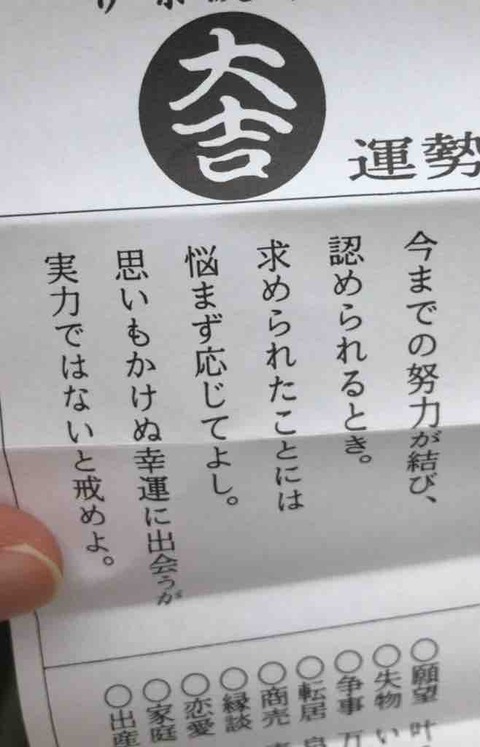 大吉
運勢
今までの努力が結び、
認められるとき。
求められたことには
悩まず応じてよし。
思いもかけぬ幸運に出会うが
実力ではないと戒めよ。
○願望 叶
○失物 い
○争事 万
○転居
○商売
○縁談
○恋愛
○家庭
○出産